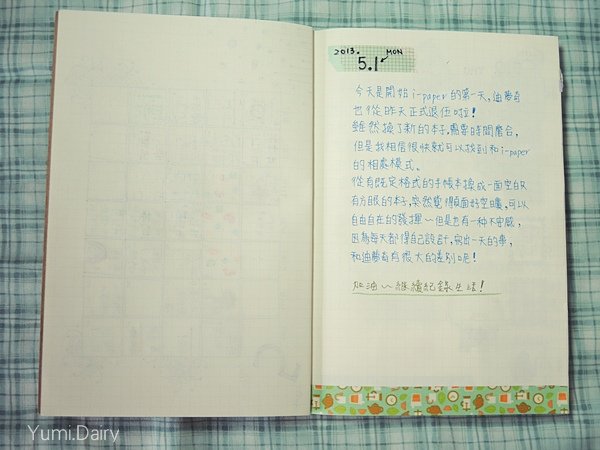 2013.
5.1
MON
今天是開始i-paper的第一天,油夢奇
也從昨天正式退伍啦!
雖然換了新的本子,需要時間磨合,
但是我相信很快就可以找到和i-paper
的相處模式。
從有既定格式的手帳本換成一面空白只
有方眼的本子,突然覺得頁面好空曠,可以
自由自在的發揮~但是也有一种不安感,
因為每天都得自己設計,寫出一天的事,
和油夢奇有很大的差別呢!
加油~繼續紀錄生活!
Yumi.Dairy